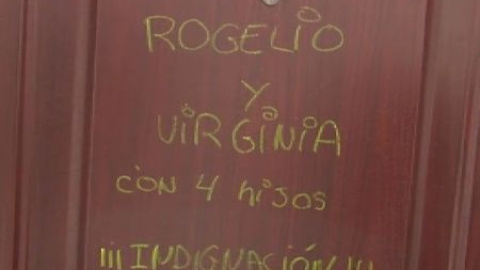 ROGELIO
Y
VIRGINIA
CON 4 hijos
¡¡¡INDIGNACIÓN!!!